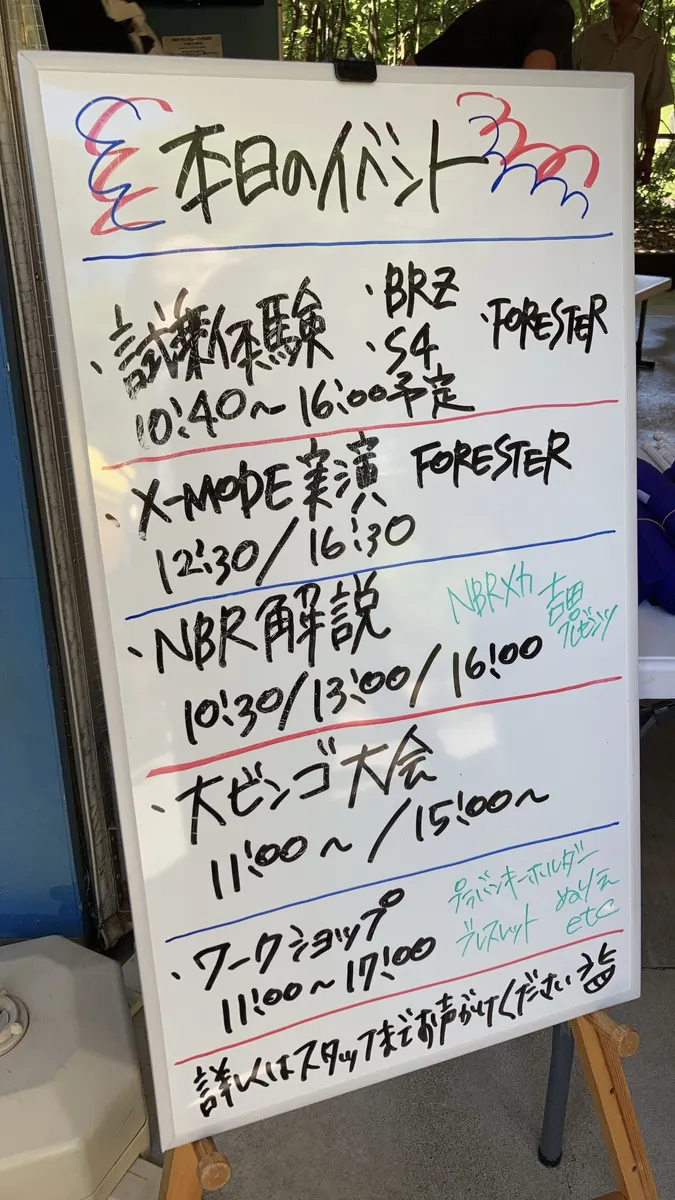 本日のイベント
・試乗体験 ・BRZ ・S4 ・FORESTER
10:40〜16:00予定
・X-MODE実演 FORESTER
12:30/16:30
・NBR解説 NBRメカ 吉田 プレゼンツ
10:30/13:00/16:00
・大ビンゴ大会
11:00〜/15:00〜
・ワークショップ プラバンキーホルダー
11:00〜17:00 ブレスレット ぬりえ etc
詳しくはスタッフまでお声がけください